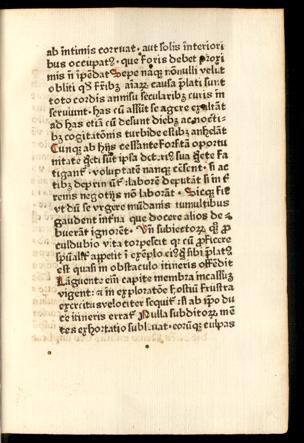 ab intimis corruat · aut solis interiori
bus occupatꝰ · que foris debet proxi
mis nō īpēdat Sepe nāqꝫ nōnulli velut
obliti qđ fr̄ibꝫ aiaꝝ causa p̄lati sunt
toto cordis annisu secularibꝫ curis in
seruiunt · has cū assūt se agere exultāt
ad has etiā cū desunt diebꝫ ac nocti
bꝫ cogitatōnis turbide estibꝫ anhelāt
Cunqꝫ ab hijs cessante forsitā oportu
nitate ipsa
tigant · voluptatē nanqꝫ cēsent · si ac
tibꝫ deprimūt · laborē deputāt si in t
renis negotijs nō laborāt · Sicqꝫ fit
vt dū se vrgere mūdanis tumultibus
gaudent int̄na que docere alios de
buerāt ignorēt · Vn̄ subiectoꝝ
culdubio vita torpescit qꝛ cū ꝓficere
sp̄ualiť appetit ī exēplo
est quasi in obstaculo itineris offēdit
Lāguente em̄ capite membra incassū
vigent · et in exploratōe hostiū frustra
exercitus velociter sequit̄ si ab ipo du
ce itineris errat̄ Nulla subditoꝝ mē
tes exhortatio subleuat · eorūqꝫ culpas